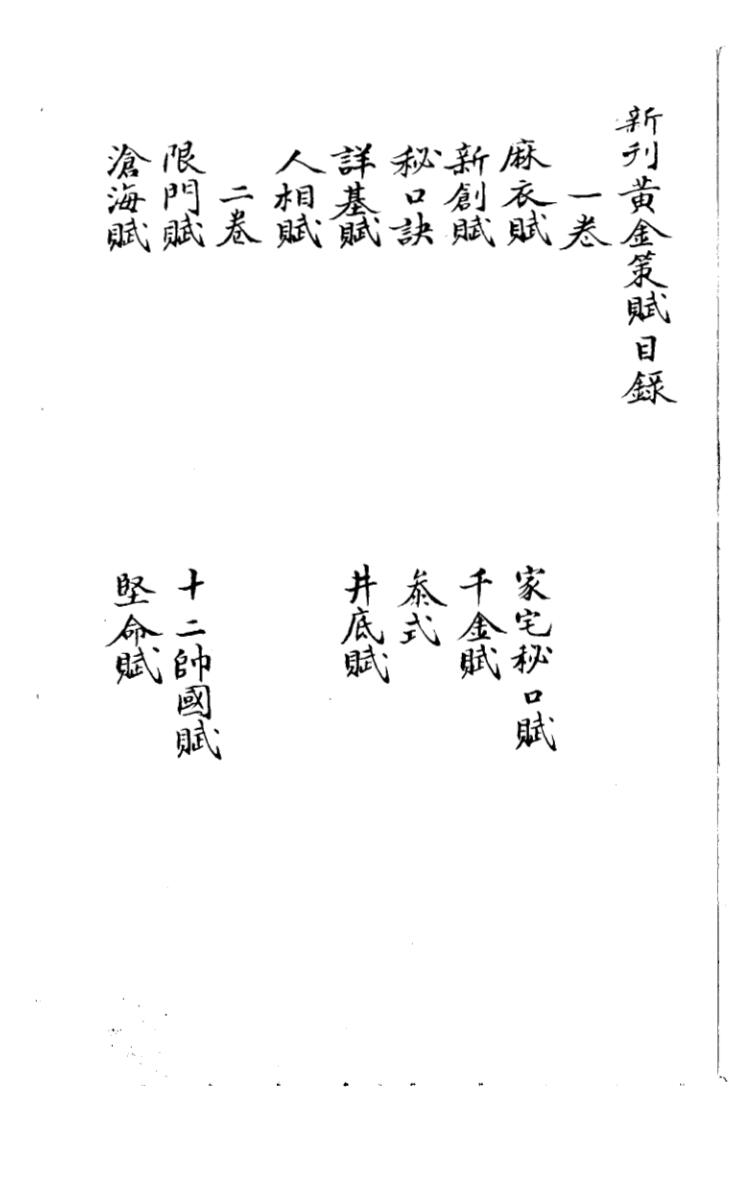 新刊黃金策賦目錄
一卷
麻衣賦 家宅秘口賦
新創賦 千金賦
秘口訣 叅式
詳基賦 井底賦
人相賦
二卷
限門賦 十二帥國賦
滄海賦 堅命賦